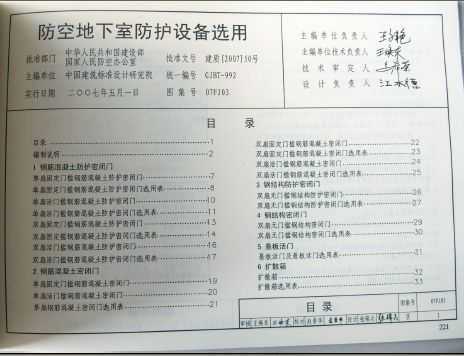 防空地下室防护设备选用
批准部门 中华人民共和国建设部
国家人民防空办公室
批准文号 建质[2007]50号
主编单位 中国建筑标准设计研究院
统一编号 GJBT-992
实行日期 二〇〇七年五月一日
图集号 07FJ03
主编单位负责人
主编单位技术负责人
技术审定人
设计负责人
目录
目录 1
编制说明 2
1 钢筋混凝土防护密闭门
单扇固定门槛钢筋混凝土防护密闭门 7
单扇固定门槛钢筋混凝土防护密闭门选用表 8
单扇活门槛钢筋混凝土防护密闭门 10
单扇活门槛钢筋混凝土防护密闭门选用表 11
双扇固定门槛钢筋混凝土防护密闭门 13
双扇固定门槛钢筋混凝土防护密闭门选用表 14
双扇活门槛钢筋混凝土防护密闭门 16
双扇活门槛钢筋混凝土防护密闭门选用表 17
2 钢筋混凝土密闭门
单扇固定门槛钢筋混凝土密闭门 19
单扇活门槛钢筋混凝土密闭门 20
单扇活门槛钢筋混凝土密闭门选用表 21
双扇固定门槛钢筋混凝土密闭门 22
双扇固定门槛钢筋混凝土密闭门选用表 23
双扇活门槛钢筋混凝土密闭门 24
双扇活门槛钢筋混凝土密闭门选用表 25
3 钢结构防护密闭门
双扇无门槛钢结构防护密闭门 26
双扇无门槛钢结构防护密闭门选用表 27
4 钢结构密闭门
双扇无门槛钢结构密闭门 29
双扇无门槛钢结构密闭门选用表 30
5 悬板活门
悬板活门及悬板活门选用表 31
6 扩散箱
扩散箱 32
扩散箱选用表 33
目录
图集号 07FJ03
审核 校对 设计
页 1
221